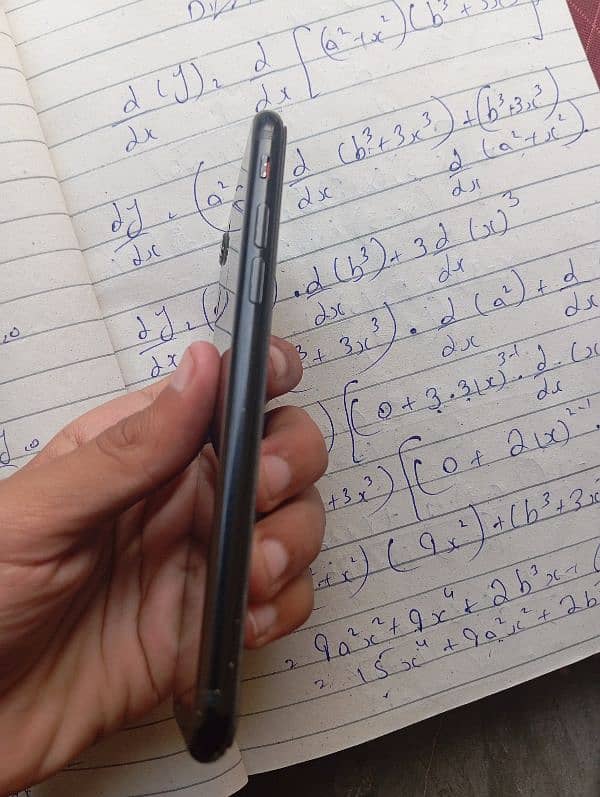 d/dx (y) = d/dx [(a²+x²)(b³+3x
dy/dx = (a² d/dx (b³+3x³) + (b³+3x³) d/dx (a²+x²).
dy/dx = ( . d/dx (b³) + 3 d/dx (x)³
3 + 3x³) . d/dx (a²) + d/dx
) [(0 + 3.3(x)³⁻¹ . d/dx . (x
+3x³) [(0 + 2(x)²⁻¹ .
+x²) (9x²) + (b³+3x
= 9a²x² + 9x⁴ + 2b³x + (
= 15x⁴ + 9a²x² + 2b